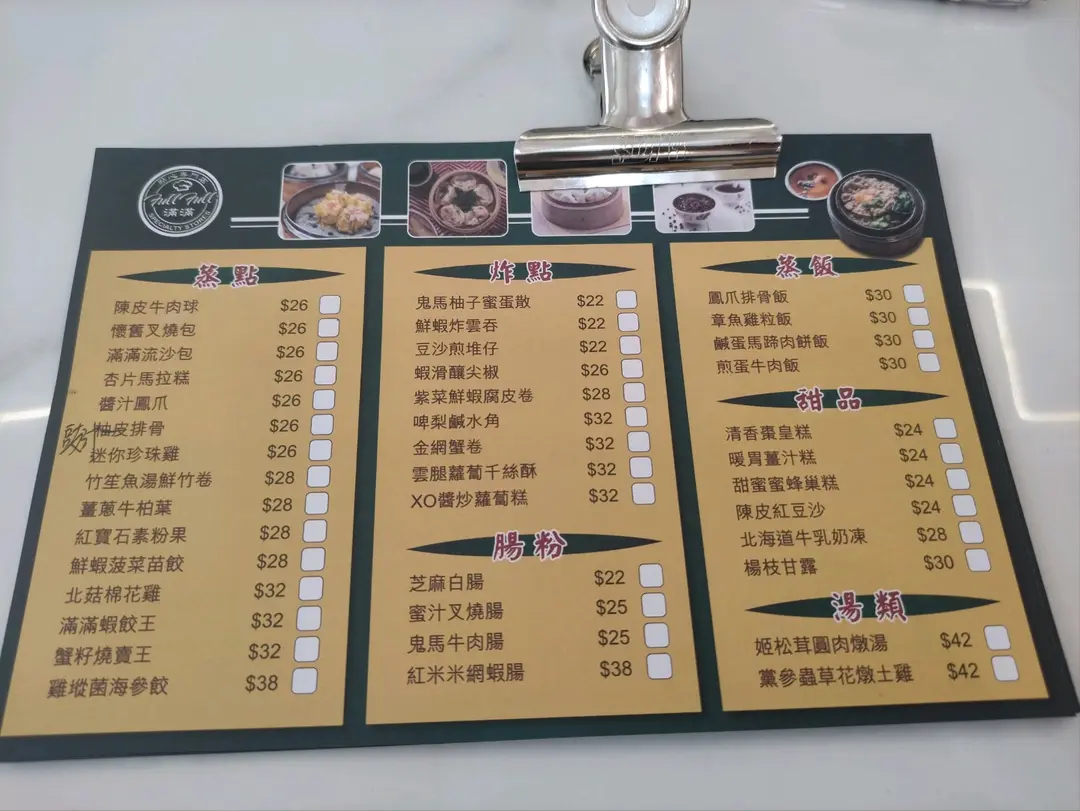 點心專門店
Full Full
滿滿
SPECIALTY STORES
蒸點
陳皮牛肉球 $26
懷舊叉燒包 $26
滿滿流沙包 $26
杏片馬拉糕 $26
醬汁鳳爪 $26
豉汁柚皮排骨 $26
迷你珍珠雞 $26
竹笙魚湯鮮竹卷 $28
薑蔥牛柏葉 $28
紅寶石素粉果 $28
鮮蝦菠菜苗餃 $28
北菇棉花雞 $32
滿滿蝦餃王 $32
蟹籽燒賣王 $32
雞樅菌海參餃 $38
炸點
鬼馬柚子蜜蛋散 $22
鮮蝦炸雲吞 $22
豆沙煎堆仔 $22
蝦滑釀尖椒 $26
紫菜鮮蝦腐皮卷 $28
啤梨鹹水角 $32
金網蟹卷 $32
雲腿蘿蔔千絲酥 $32
XO醬炒蘿蔔糕 $32
腸粉
芝麻白腸 $22
蜜汁叉燒腸 $25
鬼馬牛肉腸 $25
紅米米網蝦腸 $38
蒸飯
鳳爪排骨飯 $30
章魚雞粒飯 $30
鹹蛋馬蹄肉餅飯 $30
煎蛋牛肉飯 $30
甜品
清香棗皇糕 $24
暖胃薑汁糕 $24
甜蜜蜜蜂巢糕 $24
陳皮紅豆沙 $24
北海道牛乳奶凍 $28
楊枝甘露 $30
湯類
姬松茸圓肉燉湯 $42
黨參蟲草花燉土雞 $42